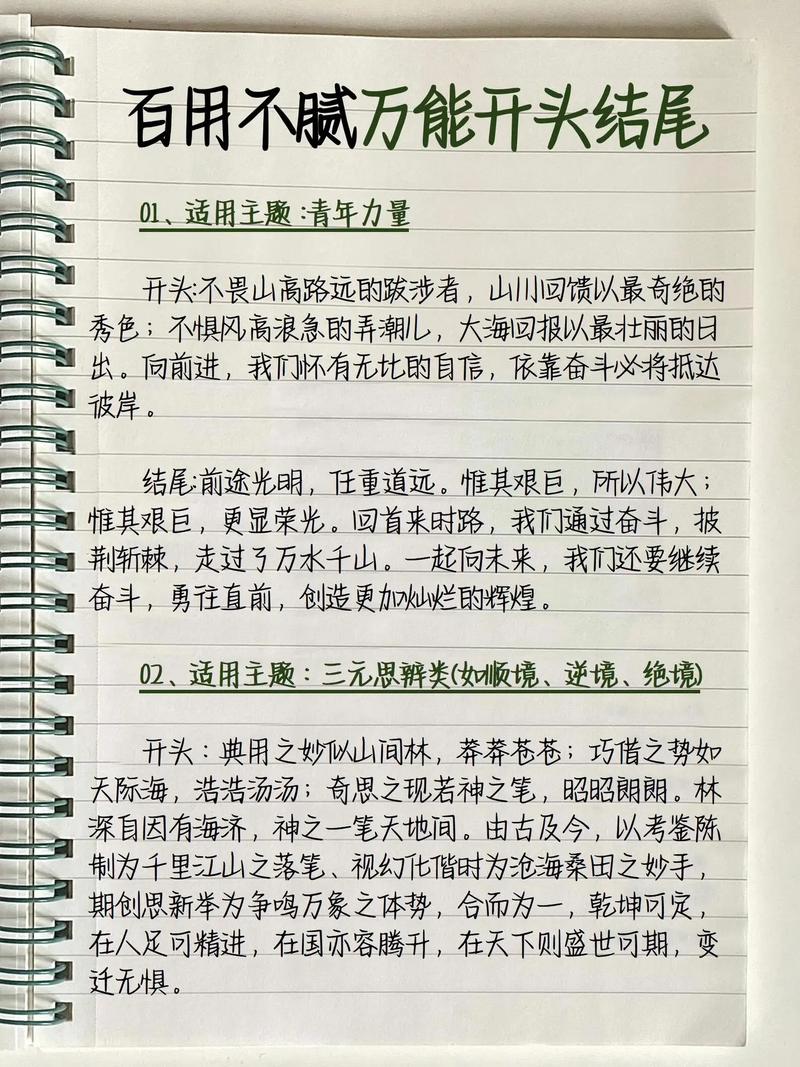 百用不腻万能开头结尾
01、适用主题:青年力量
开头:不畏山高路远的跋涉者，山川回馈以最奇绝的
秀色；不惧风高浪急的弄潮儿，大海回报以最壮丽的日
出。向前进，我们怀有无比的自信，依靠奋斗必将抵达
彼岸。
结尾:前途光明，任重道远。惟其艰巨，所以伟大；
惟其艰巨，更显荣光。回首来时路，我们通过奋斗，披
荆斩棘，走过了万水千山。一起向未来，我们还要继续
奋斗，勇往直前，创造更加灿烂的辉煌。
02、适用主题：三元思辨类(如顺境、逆境、绝境)
开头：典用之妙似山间林，莽莽苍苍；巧借之势如
天际海，浩浩汤汤；奇思之现若神之笔，昭昭朗朗。林
深自因有海济，神之一笔天地间。由古及今，以考鉴陈
制为千里江山之落笔、视幻化偕时为沧海桑田之妙手，
期创思新举为争鸣万象之体势，合而为一，乾坤可定，
在人足可精进，在国亦容腾升，在天下则盛世可期，变
迁无惧。